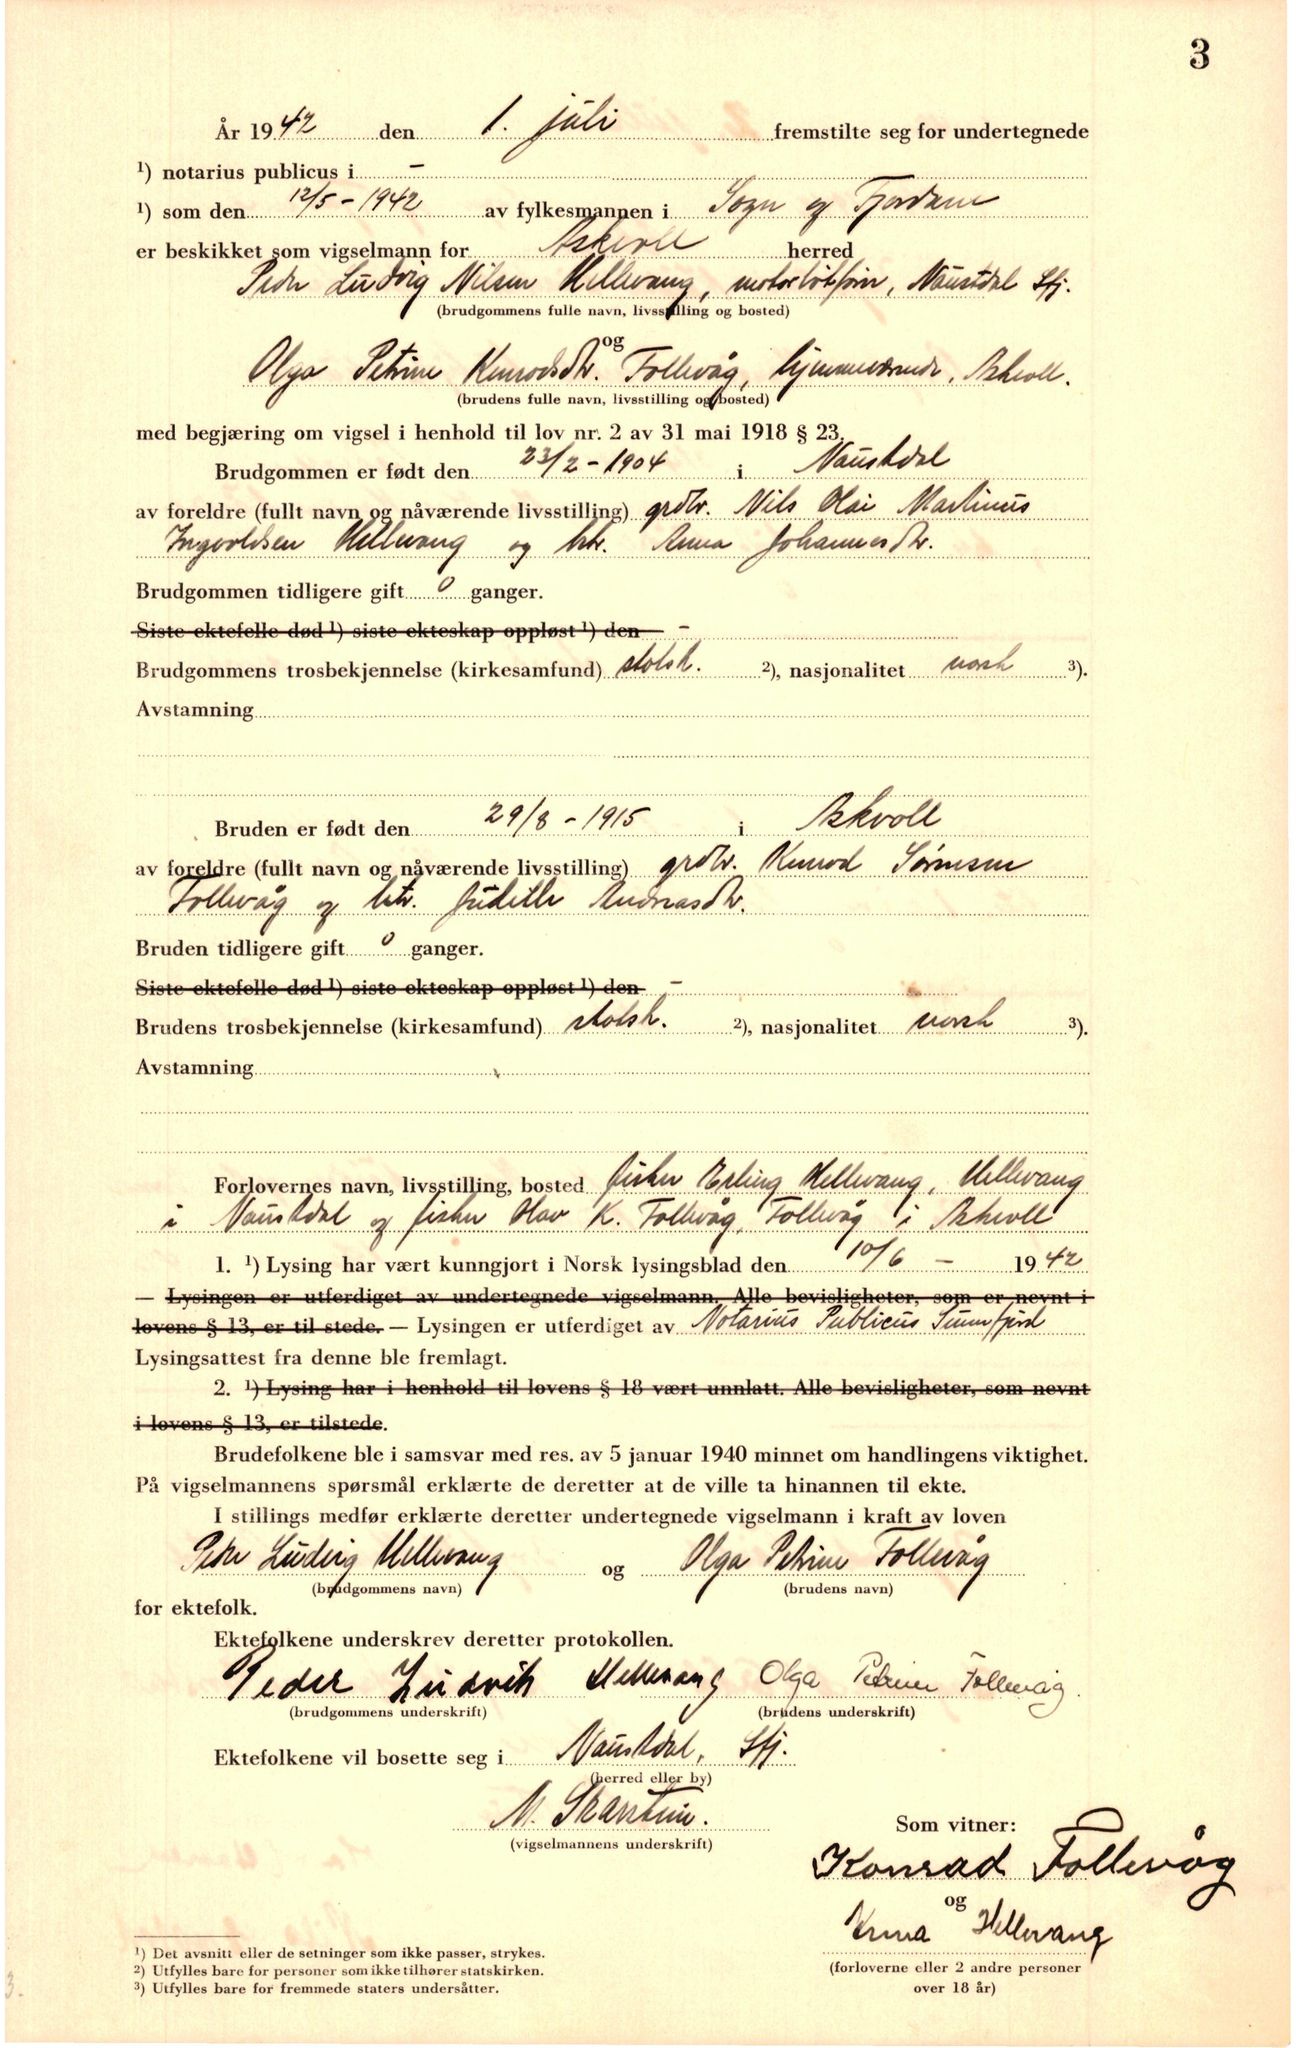 3
År 1942 den 1. juli fremstilte seg for undertegnede
¹) notarius publicus i –
¹) som den 12/5 – 1942 av fylkesmannen i Sogn og Fjordane
er beskikket som vigselmann for Askvoll herred
Peder Ludvig Nilsen Hellevang, motorbåtfører, Naustdal Sfj.
(brudgommens fulle navn, livsstilling og bosted)
og
Olga Petrine Konradsdtr. Follevåg, hjemmeværende, Askvoll.
(brudens fulle navn, livsstilling og bosted)
med begjæring om vigsel i henhold til lov nr. 2 av 31 mai 1918 § 23.
Brudgommen er født den 23/2 – 1904 i Naustdal
av foreldre (fullt navn og nåværende livsstilling) grdbr. Nils Olai Martinus
Ingvoldsen Hellevang og htr. Anna Johannesdtr.
Brudgommen tidligere gift 0 ganger.
Siste ektefelle død ¹) siste ekteskap oppløst ¹) den –
Brudgommens trosbekjennelse (kirkesamfund) statsk. ²), nasjonalitet norsk ³).
Avstamning
Bruden er født den 29/8 – 1915 i Askvoll
av foreldre (fullt navn og nåværende livsstilling) grdbr. Konrad Sørensen
Follevåg og htr. Judith Andreasdtr.
Bruden tidligere gift 0 ganger.
Siste ektefelle død ¹) siste ekteskap oppløst ¹) den –
Brudens trosbekjennelse (kirkesamfund) statsk. ²), nasjonalitet norsk ³).
Avstamning
Forlovernes navn, livsstilling, bosted fisker Erling Hellevang, Hellevang
i Naustdal og fisker Olav K. Follevåg, Follevåg i Askvoll
1. ¹) Lysing har vært kunngjort i Norsk lysingsblad den 10/6 – 1942
— Lysingen er utferdiget av undertegnede vigselmann. Alle bevisligheter, som er nevnt i
lovens § 13, er til stede. — Lysingen er utferdiget av Notarius Publicus Sunnfjord
Lysingsattest fra denne ble fremlagt.
2. ¹) Lysing har i henhold til lovens § 18 vært unnlatt. Alle bevisligheter, som nevnt
i lovens § 13, er tilstede.
Brudefolkene ble i samsvar med res. av 5 januar 1940 minnet om handlingens viktighet.
På vigselmannens spørsmål erklærte de deretter at de ville ta hinannen til ekte.
I stillings medfør erklærte deretter undertegnede vigselmann i kraft av loven
Peder Ludvig Hellevang og Olga Petrine Follevåg
(brudgommens navn) (brudens navn)
for ektefolk.
Ektefolkene underskrev deretter protokollen.
Peder Ludvik Hellevang Olga Petrine Follevåg.
(brudgommens underskrift) (brudens underskrift)
Ektefolkene vil bosette seg i Naustdal, Sfj.
(herred eller by)
M. Skarstein.
(vigselmannens underskrift)
Som vitner:
Konrad Follevåg
og
Hellevang
(forloverne eller 2 andre personer
over 18 år)
¹) Det avsnitt eller de setninger som ikke passer, strykes.
²) Utfylles bare for personer som ikke tilhører statskirken.
³) Utfylles bare for fremmede staters undersåtter.
3.